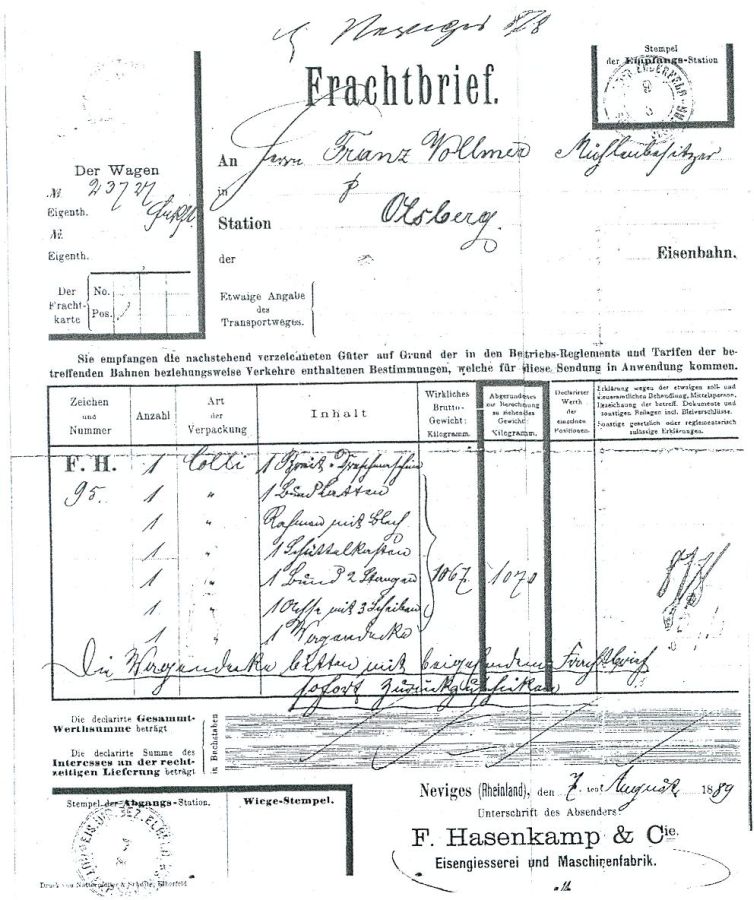 Neviges 8/8
Stempel
der Empfangs-Station
Frachtbrief.
Der Wagen
№ 23727
Eigenth.
№
Eigenth.
Der Fracht-karte
No.
Pos.
An Herrn Franz Vollmer Mühlenbesitzer
in
Station Olsberg.
der Eisenbahn.
Etwaige Angabe
des
Transportweges.
Sie empfangen die nachstehend verzeichneten Güter auf Grund der in den Betriebs-Reglements und Tarifen der be-
treffenden Bahnen beziehungsweise Verkehre enthaltenen Bestimmungen, welche für diese Sendung in Anwendung kommen.
Zeichen und Nummer
Anzahl
Art der Verpackung
Inhalt
Wirkliches Brutto-Gewicht: Kilogramm.
Abgerundetes zur Berechnung zu ziehendes Gewicht: Kilogramm.
Declarirter Werth der einzelnen Positionen.
Erklärung wegen der etwaigen zoll- und
steueramtlichen Behandlung, Mittelsperson,
Bezeichnung der betreff. Dokumente und
sonstigen Beilagen incl. Bleiverschlüsse.
Sonstige gesetzlich oder reglementarisch
zulässige Erklärungen.
F. H. 1 Colli 1 Breit-Dreschmaschine
95. 1 " 1 Bund Latten
1 " Rahmen mit Blech
1 " 1 Schüttelkasten
1 " 1 Bund 2 Stangen 1067 1070
1 " 1 Achse mit 3 Scheiben
1 " 1 Wagendecke
Die Wagendecke bitten mit beigehendem Frachtbrief
sofort zurückzuschicken
Die declarirte Gesammt-
Werthsumme beträgt
Die declarirte Summe des
Interesses an der recht-
zeitigen Lieferung beträgt
in Buchstaben
Stempel der Abgangs-Station.
Wiege-Stempel.
Neviges (Rheinland), den 7 ten August 1889
Unterschrift des Absenders:
F. Hasenkamp & Cie.
Eisengiesserei und Maschinenfabrik.